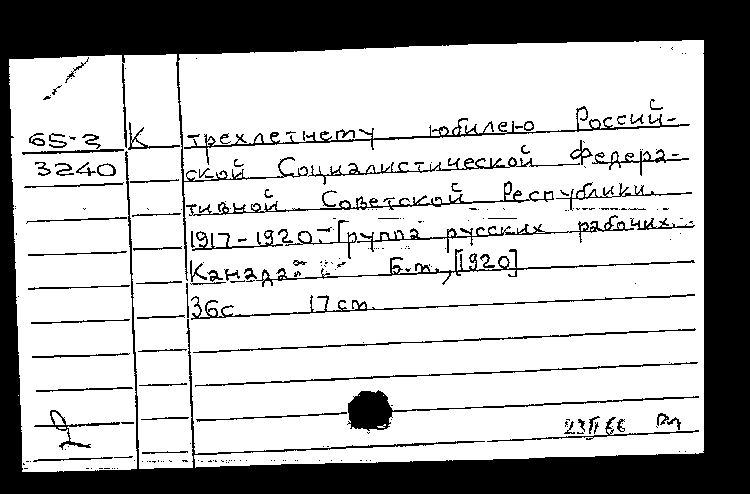 65-3 К трехлетнему юбилею Россий-
3240 ской Социалистической Федера-
тивной Советской Республики.
1917-1920.- Группа русских рабочих.-
Канада: Б.т., [1920]
36с. 17 см.
23 II 66